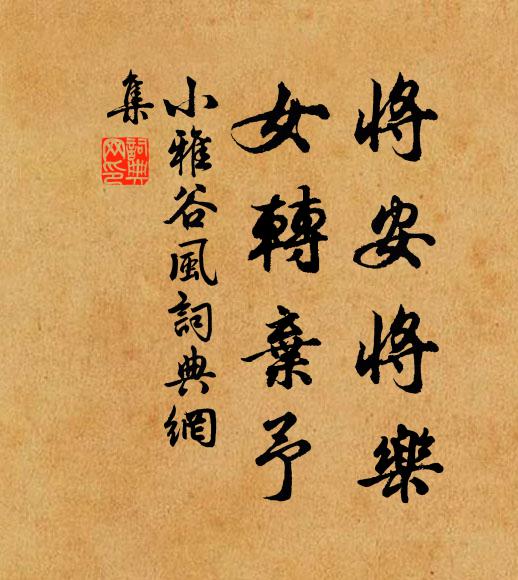 將安將樂
女轉棄予
小雅谷風詞典網
集
詞典
网印